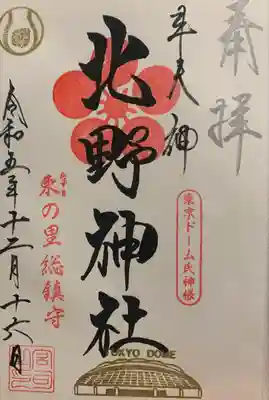 奉拝
牛天神
北野神社
東京ドーム氏神様
令和五年十二月十六日
東の里総鎮守
TOKYO DOME